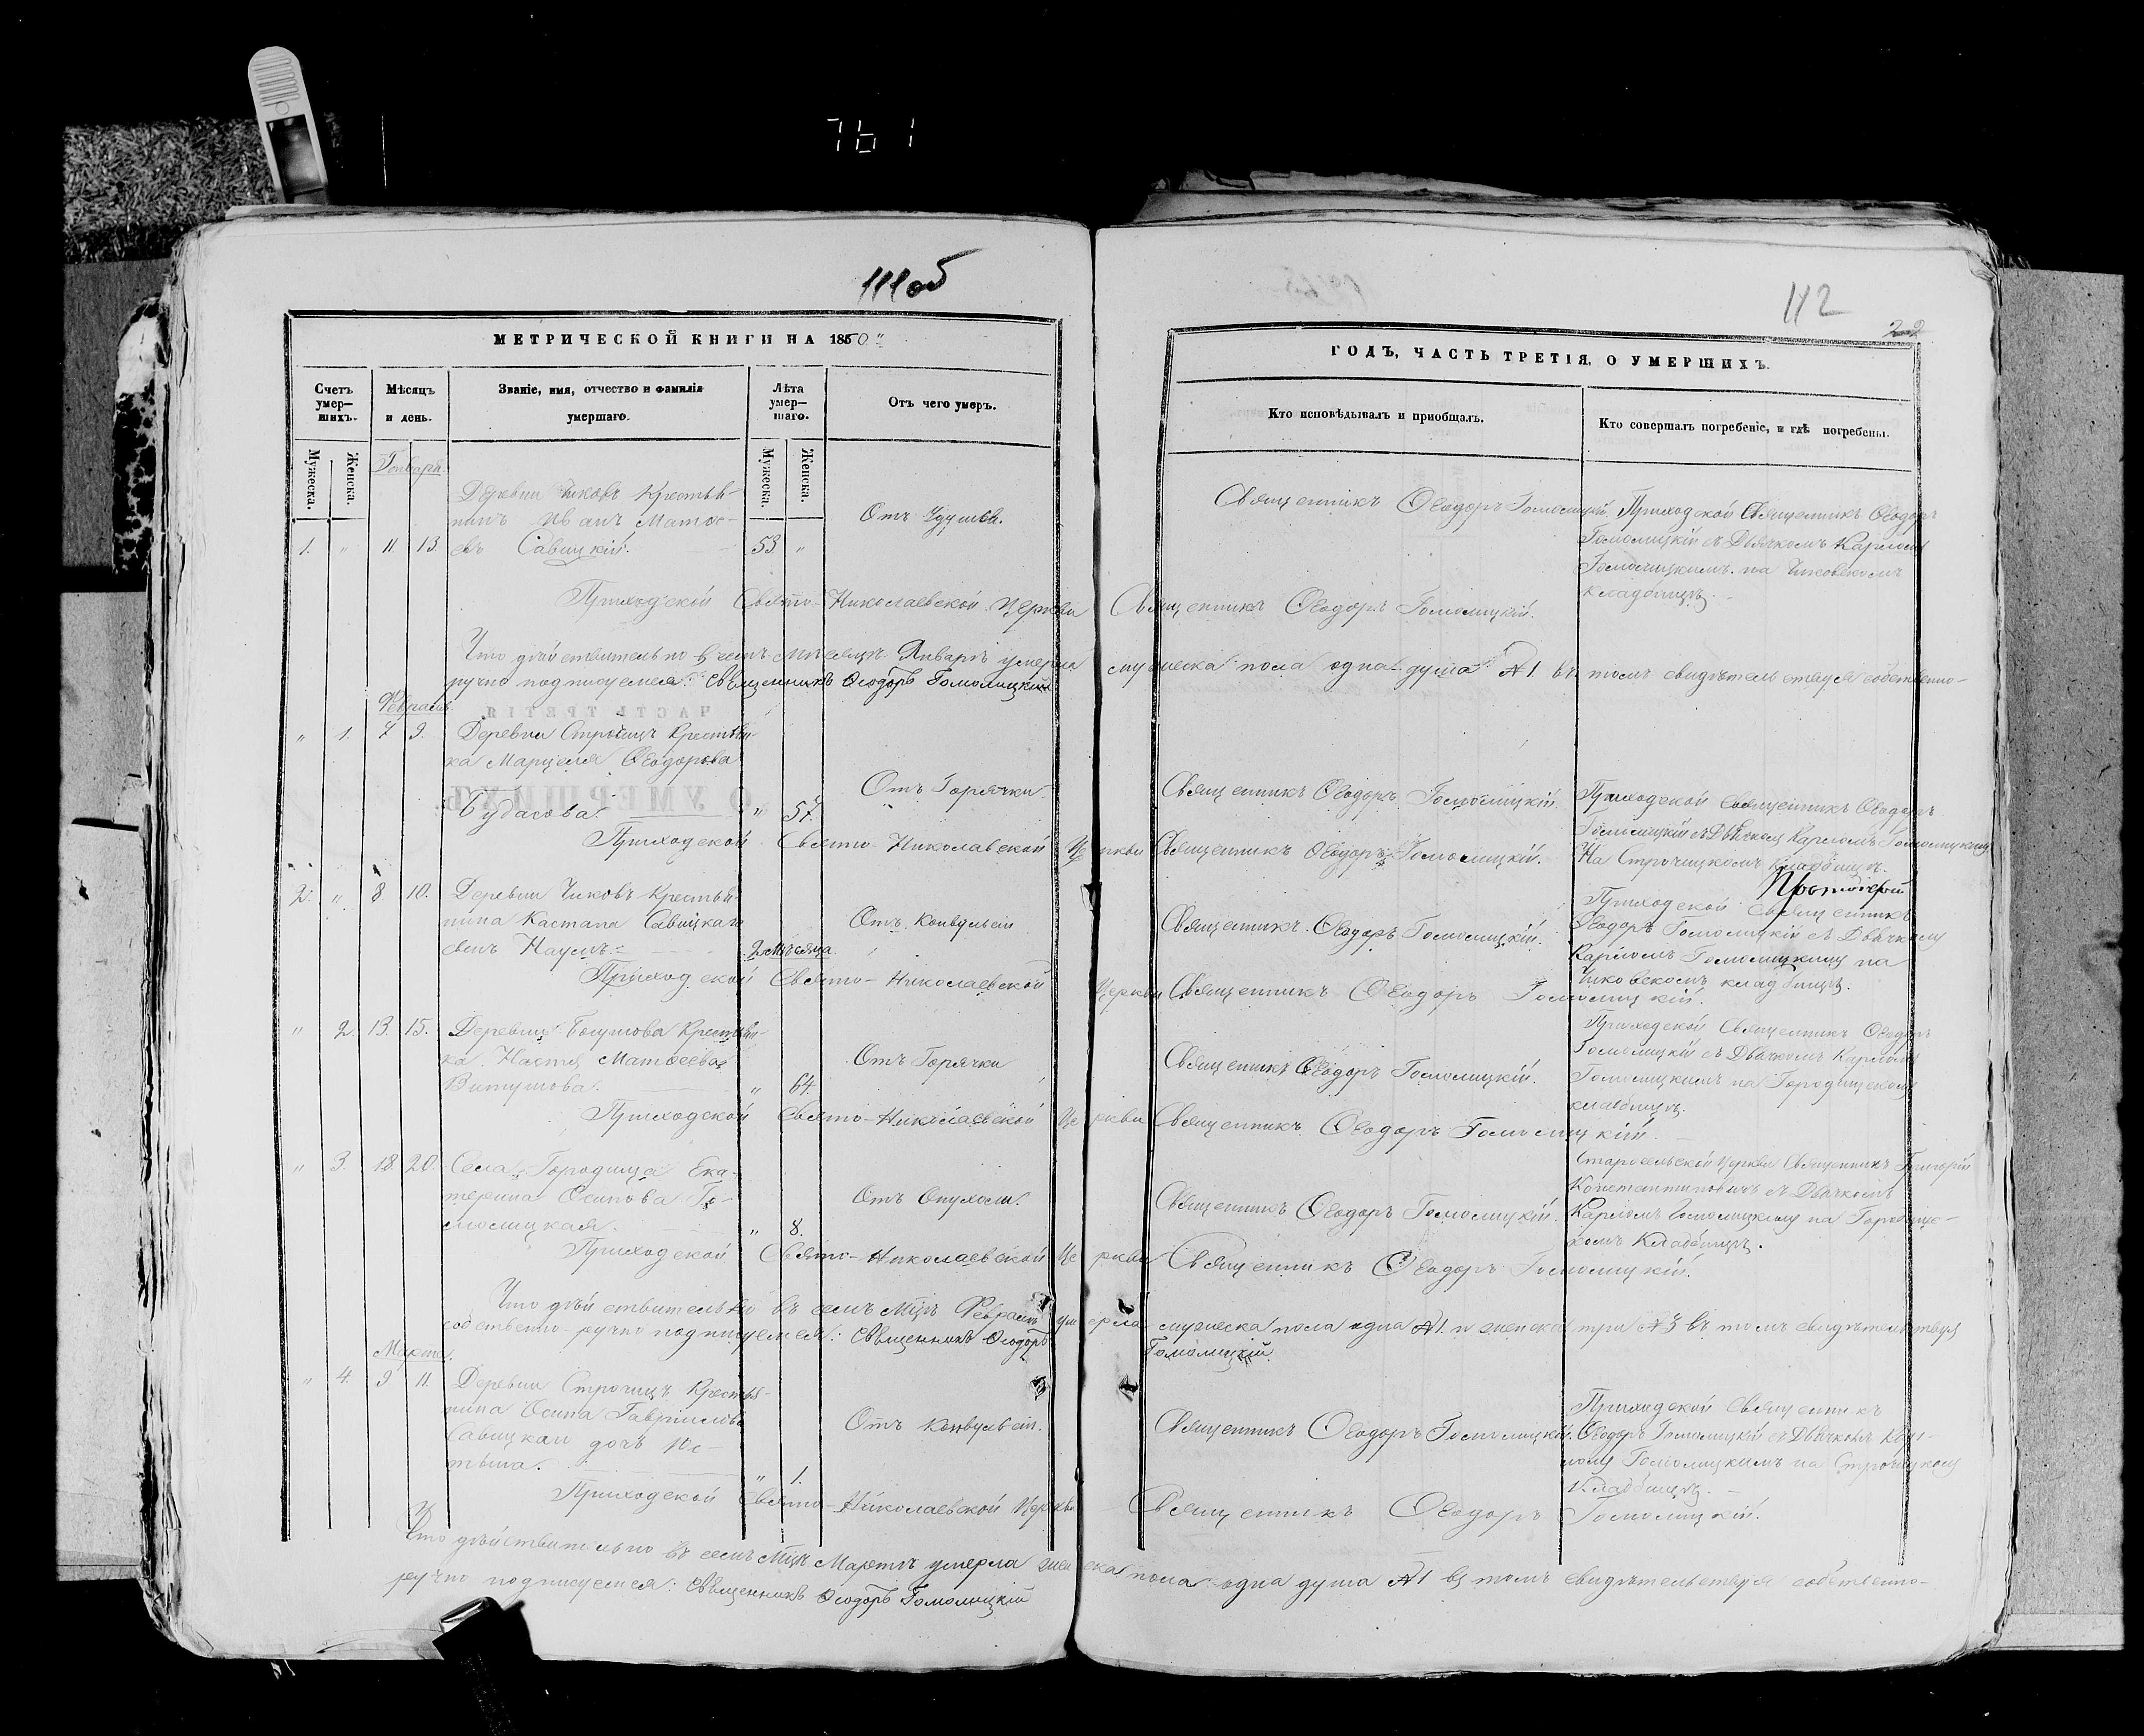 761
111 об
112
22
МЕТРИЧЕСКОЙ КНИГИ НА 1850"
ГОДЪ, ЧАСТЬ ТРЕТІЯ, О УМЕРШИХЪ.
Счетъ умер-шихъ.
Мѣсяцъ и день.
Званіе, имя, отчество и фамилія умершаго.
Лѣта умер-шаго.
Отъ чего умеръ.
Кто исповѣдывалъ и приобщалъ.
Кто совершалъ погребеніе, и гдѣ погребены.
Мужеска.
Женска.
Мужеска.
Женска.
Генваря.
Деревни Чиковъ Крестья-
нинъ Иванъ Матѳе-
1. " 11. 13. евъ Савицкій. 53. "
Отъ Удушья.
Священникъ Ѳеодоръ Гомолицкій.
Приходской Священникъ Ѳеодоръ
Гомолицкій съ Дьячкомъ Карломъ
Гомолицкимъ на Чиковскомъ
кладбищѣ.
Приходской Свято-Николаевской Церкви Священникъ Ѳеодоръ Гомолицкій.
Что дѣйствительно въ семъ мѣсяцѣ Январѣ умерла мужеска пола одна душа №1 въ томъ свидѣтельствуя собственно-
ручно подписуемся: Священникъ Ѳеодоръ Гомолицкій
Февраля.
" 1. 7 9. Деревни Строчицъ Крестьян-
ка Марцеля Ѳеодорова
" 57.
Отъ Горячки.
Священникъ Ѳеодоръ Гомолицкій.
Приходской Священникъ Ѳеодоръ
Гомолицкій съ Дьячкомъ Карломъ Гомолицкимъ
На Строчицкомъ кладбищѣ.
Приходской Свято-Николаевской Церкви Священникъ Ѳеодоръ Гомолицкій.
2. " 8 10. Деревни Чиковъ Крестья-
нина Савицкаго
сынъ Наумъ 2 мѣсяца
Отъ Конвульсіи
Священникъ Ѳеодоръ Гомолицкій.
Приходской Священникъ
Ѳеодоръ Гомолицкій съ Дьячкомъ
Карломъ Гомолицкимъ на
Чиковскомъ кладбищѣ.
Приходской Свято-Николаевской Церкви Священникъ Ѳеодоръ Гомолицкій.
" 2. 13. 15. Деревни Крестьян-
ка Настя Матѳеева
" 64.
Отъ Горячки
Священникъ Ѳеодоръ Гомолицкій.
Приходской Священникъ Ѳеодоръ
Гомолицкій съ Дьячкомъ Карломъ
Гомолицкимъ на Городищскомъ
кладбищѣ.
Приходской Свято-Николаевской Церкви Священникъ Ѳеодоръ Гомолицкій.
" 3. 18 20. Села Городища Ека-
терина Осипова Го-
молицкая. " 8.
Отъ Опухоли.
Священникъ Ѳеодоръ Гомолицкій.
Старосельской Церкви Священникъ Григорій
Константиновичъ съ Дьячкомъ
Карломъ Гомолицкимъ на Городищс-
комъ Кладбищѣ.
Приходской Свято-Николаевской Церкви Священникъ Ѳеодоръ Гомолицкій.
Что дѣйствительно въ семъ Мцѣ Февралѣ умерла мужеска пола одна №1. и женска три №3 въ томъ свидѣтельствуя
собственно-ручно подписуемся: Священникъ Ѳеодоръ Гомолицкій.
Марта.
" 4. 9 11. Деревни Строчицъ Крестья-
нина Осипа Гавріилова
Савицкаго дочь
" 1.
Отъ Конвульсіи.
Священникъ Ѳеодоръ Гомолицкій.
Приходской Священникъ
Ѳеодоръ Гомолицкій съ Дьячкомъ Кар-
ломъ Гомолицкимъ на Строчицкомъ
Кладбищѣ.
Приходской Свято-Николаевской Церкви Священникъ Ѳеодоръ Гомолицкій.
Что дѣйствительно въ семъ Мцѣ Мартѣ умерла женска пола одна душа №1 въ томъ свидѣтельствуя собственно-
ручно подписуемся: Священникъ Ѳеодоръ Гомолицкій